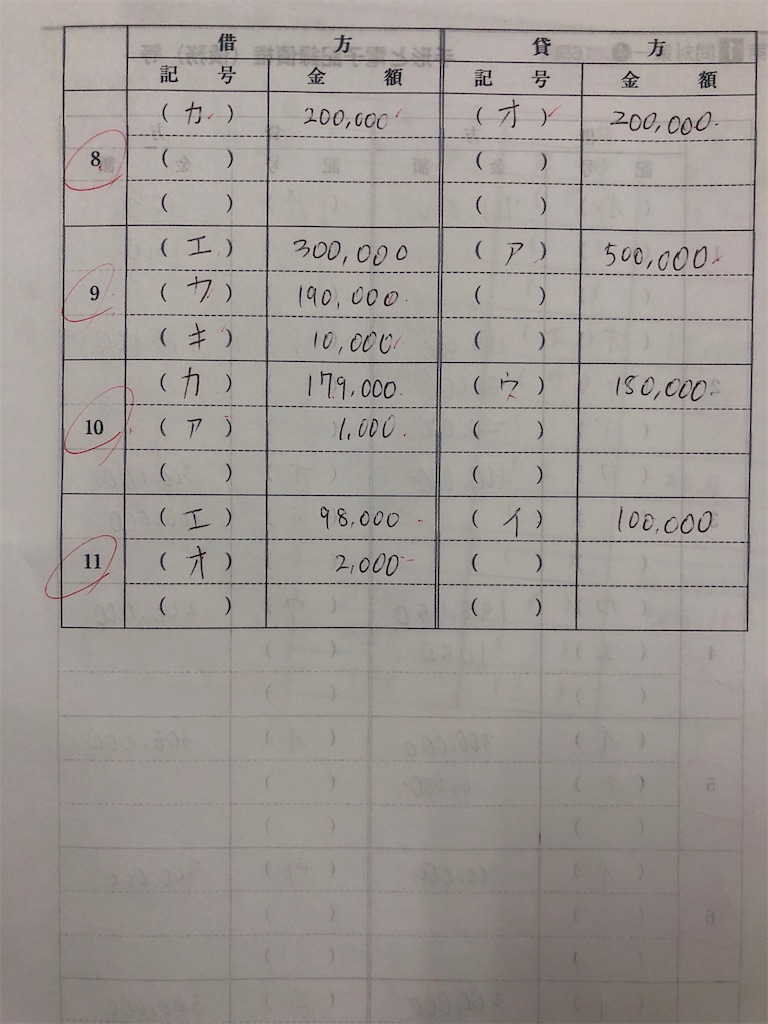 借 方 貸 方
記 号 金 額 記 号 金 額
8 (カ) 200,000 (オ) 200,000
( ) ( )
( ) ( )
9 (エ) 300,000 (ア) 500,000
(ウ) 190,000 ( )
(キ) 10,000 ( )
10 (カ) 179,000 (ウ) 180,000
(ア) 1,000 ( )
( ) ( )
11 (エ) 98,000 (イ) 100,000
(オ) 2,000 ( )
( ) ( )